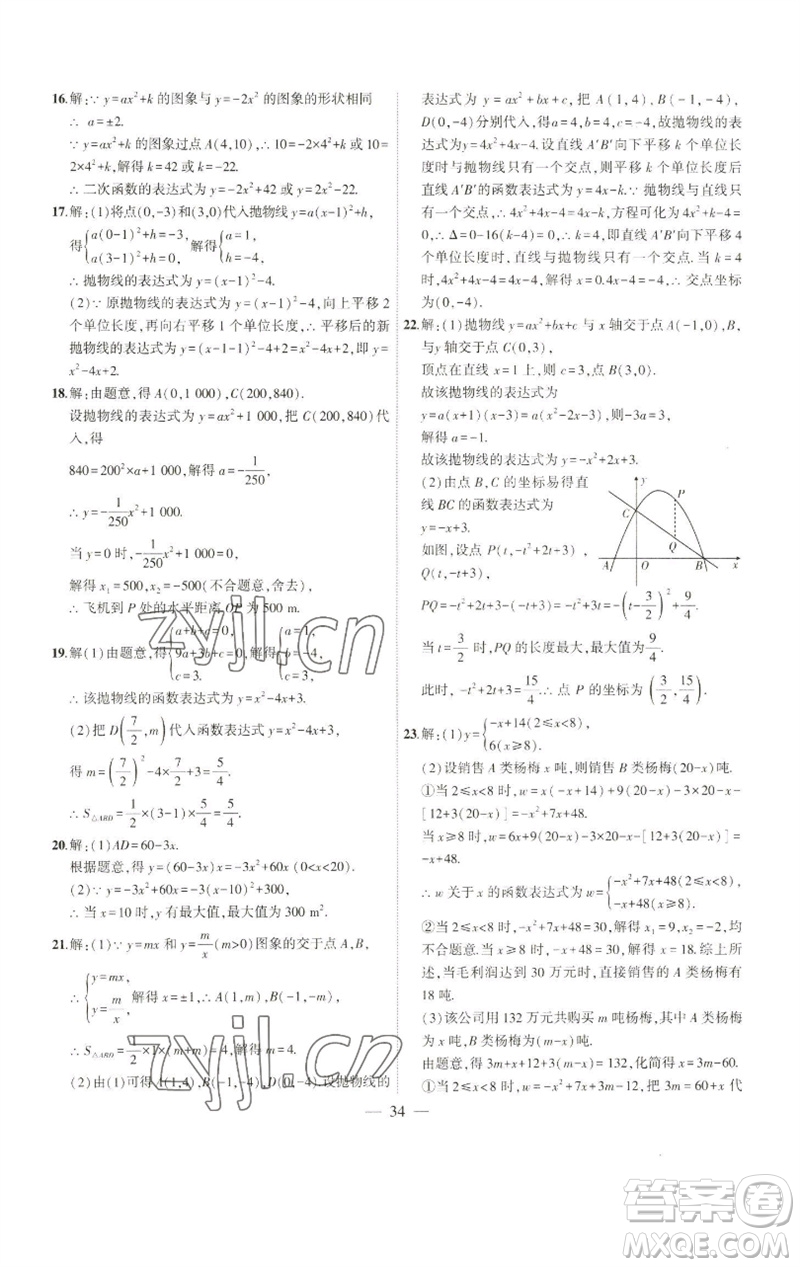 16.解:∵ y=ax²+k 的图象与 y=-2x² 的图象的形状相同
∴ a=±2.
∵ y=ax²+k 的图象过点 A(4,10),∴ 10=-2×4²+k 或 10=
2×4²+k,解得 k=42 或 k=-22.
∴ 二次函数的表达式为 y=-2x²+42 或 y=2x²-22.
17.解:(1)将点(0,-3)和(3,0)代入抛物线 y=a(x-1)²+h,
得{a(0-1)²+h=-3, a(3-1)²+h=0, 解得{a=1, h=-4.
∴ 抛物线的表达式为 y=(x-1)²-4.
(2)∵ 原抛物线的表达式为 y=(x-1)²-4,向上平移 2
个单位长度,再向右平移 1 个单位长度,∴ 平移后的新
抛物线的表达式为 y=(x-1-1)²-4+2=(x-2)²-2,即 y=
x²-4x+2.
18.解:由题意,得 A(0,1 000),C(200,840).
设抛物线的表达式为 y=ax²+1 000,把 C(200,840)代
入,得
840=200²×a+1 000,解得 a=-1/250,
∴ y=-1/250x²+1 000.
当 y=0 时,-1/250x²+1 000=0,
解得 x₁=500,x₂=-500(不合题意,舍去),
∴ 飞机到 P 处的水平距离 OP 为 500 m.
19.解(1)由题意,得{a+b+c=0, 9a+3b+c=0, c=3. {a=1, b=-4, c=3.
∴ 该抛物线的函数表达式为 y=x²-4x+3.
(2)把 D(7/2,m)代入函数表达式 y=x²-4x+3,
得 m=(7/2)²-4×7/2+3=5/4.
∴ S△ABD=1/2×(3-1)×5/4=5/4.
20.解:(1)AD=60-3x.
根据题意,得 y=(60-3x)x=-3x²+60x (0<x<20).
(2)∵ y=-3x²+60x=-3(x-10)²+300,
∴ 当 x=10 时,y 有最大值,最大值为 300 m².
21.解:(1)∵ y=mx 和 y=m/x(m>0)图象的交于点 A,B,
∴{y=mx, y=m/x, 解得 x=±1,∴ A(1,m),B(-1,-m),
∴ S△ABD=1/2×1×(m+m)=4,解得 m=4.
(2)由(1)可得 A(1,4),B(-1,-4),D(0,-4),设抛物线的
表达式为 y=ax²+bx+c,把 A(1,4),B(-1,-4),
D(0,-4)分别代入,得 a=4,b=4,c=-4,故抛物线的表
达式为y=4x²+4x-4.设直线 A′B′向下平移 k 个单位
长度时与抛物线只有一个交点,则平移 k 个单位长度后
直线 A′B′的函数表达式为 y=4x-k.∵ 抛物线与直线
只有一个交点,∴ 4x²+4x-4=4x-k,方程可化为 4x²-4+
k=0,∴ Δ=0-16(k-4)=0,∴ k=4,即直线 A′B′向下平
移 4 个单位长度时,直线与抛物线只有一个交点.当
k=4 时,4x²+4x-4=4x-4,解得 x=0.∴ 交点坐标
为(0,-4).
22.解:(1)抛物线 y=ax²+bx+c 与 x 轴交于点 A(-1,0),B,
与y 轴交于点 C(0,3),
顶点在直线 x=1 上,则点 B(3,0).
故该抛物线的表达式为
y=a(x+1)(x-3)=a(x²-2x-3),则-3a=3,
解得 a=-1.
故该抛物线的表达式为 y=-x²+2x+3.
(2)由点 B,C 的坐标易得直
线 BC 的函数表达式为
y=-x+3.
如图,设点 P(t,-t²+2t+3),
Q(t,-t+3),
y
C
P
Q
A
O
B
x
PQ=-t²+2t+3-(-t+3)=-t²+3t=-(t-3/2)²+9/4.
当 t=3/2 时,PQ 的长度最大,最大值为 9/4.
此时,-t²+2t+3=15/4.∴ 点 P 的坐标为(3/2,15/4).
23.解:(1)y={-x+14(2≤x<8), 6(x≥8).
(2)设销售 A 类杨梅 x 吨,则销售 B 类杨梅(20-x)吨.
①当 2≤x<8 时,w=x(-x+14)+9(20-x)-3×20-
[12+3(20-x)]=-x²+7x+48.
当 x≥8 时,w=6x+9(20-x)-3×20-[12+3(20-x)]=
-x+48.
∴ w 关于 x 的函数表达式为{-x²+7x+48(2≤x<8), -x+48(x≥8).
②当 2≤x<8 时,-x²+7x+48=30,解得 x₁=9,x₂=-2,均
不合题意.当 x≥8 时,-x+48=30,解得 x=18.综上所
述,当毛利润达到 30 万元时,直接销售的 A 类杨梅有
18 吨.
(3)该公司用 132 万元共购买 m 吨杨梅,其中 A 类杨梅
为 x 吨,B 类杨梅为(m-x)吨.
由题意,得 3m+x+12+3(m-x)=132,化简得 x=3m-60.
①当 2≤x<8 时,w=x(-x+14)+9(m-x)-132,把 3m=60+x 代
— 34 —
zyjl.cn
zyjl.cn
答案卷
MXQE.COM